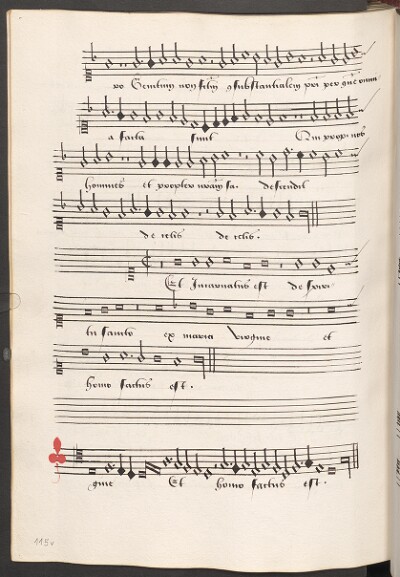 ro Genitum non factū ꝯsubstantialem pr̄i per quē omnia
a facta sunt Qui propt nos
homines et propter nr̄am sa. descendit
de celis de celis.
Et Incarnatus est de spiri
tu sancto ex maria virgine et
homo factus est.
gine Et homo factus est.
115v